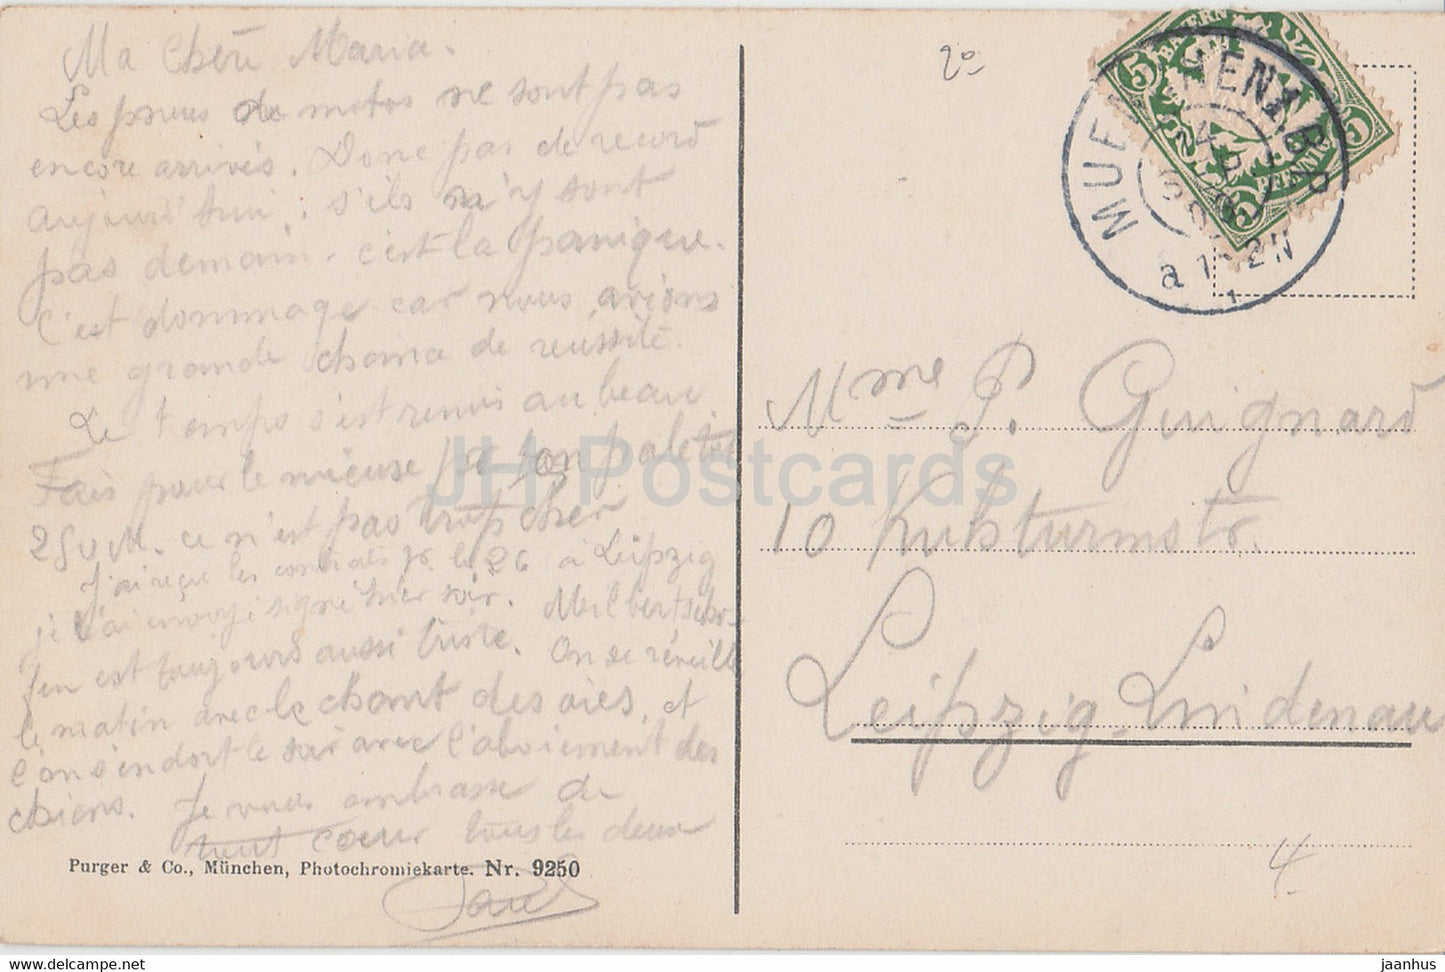 Ma Chère Maria.
Les pneus de motos ne sont pas
encore arrivés. Donc pas de record
aujourd'hui, s'ils n'y sont
pas demain. c'est la panique.
C'est dommage car nous avions
une grande de réussite.
Le temps s'est remis au beau
Fais pour le mieux pr ton paletot
250 M. ce n'est pas trop cher
J'ai reçu les contrats pr. le 26 à Leipzig
je l'ai envoyé signé hier soir. Milbertsho-
fen est toujours aussi triste. On se réveille
le matin avec le chant des oies, et
l'on s'endort le soir avec l'aboiement des
chiens. Je vous embrasse de
tout coeur tous les deux
Purger & Co., München, Photochromiekarte. Nr. 9250
Paul
20
BAYERN
5 5 5
PFENNIG
MUENCHEN 1. B.P.
4
SEP
a 1-2N
1
Mme P. Guignard
10 Kuhturmstr.
Leipzig-Lindenau
4
JH Postcards
jaanhus
www.delcampe.net